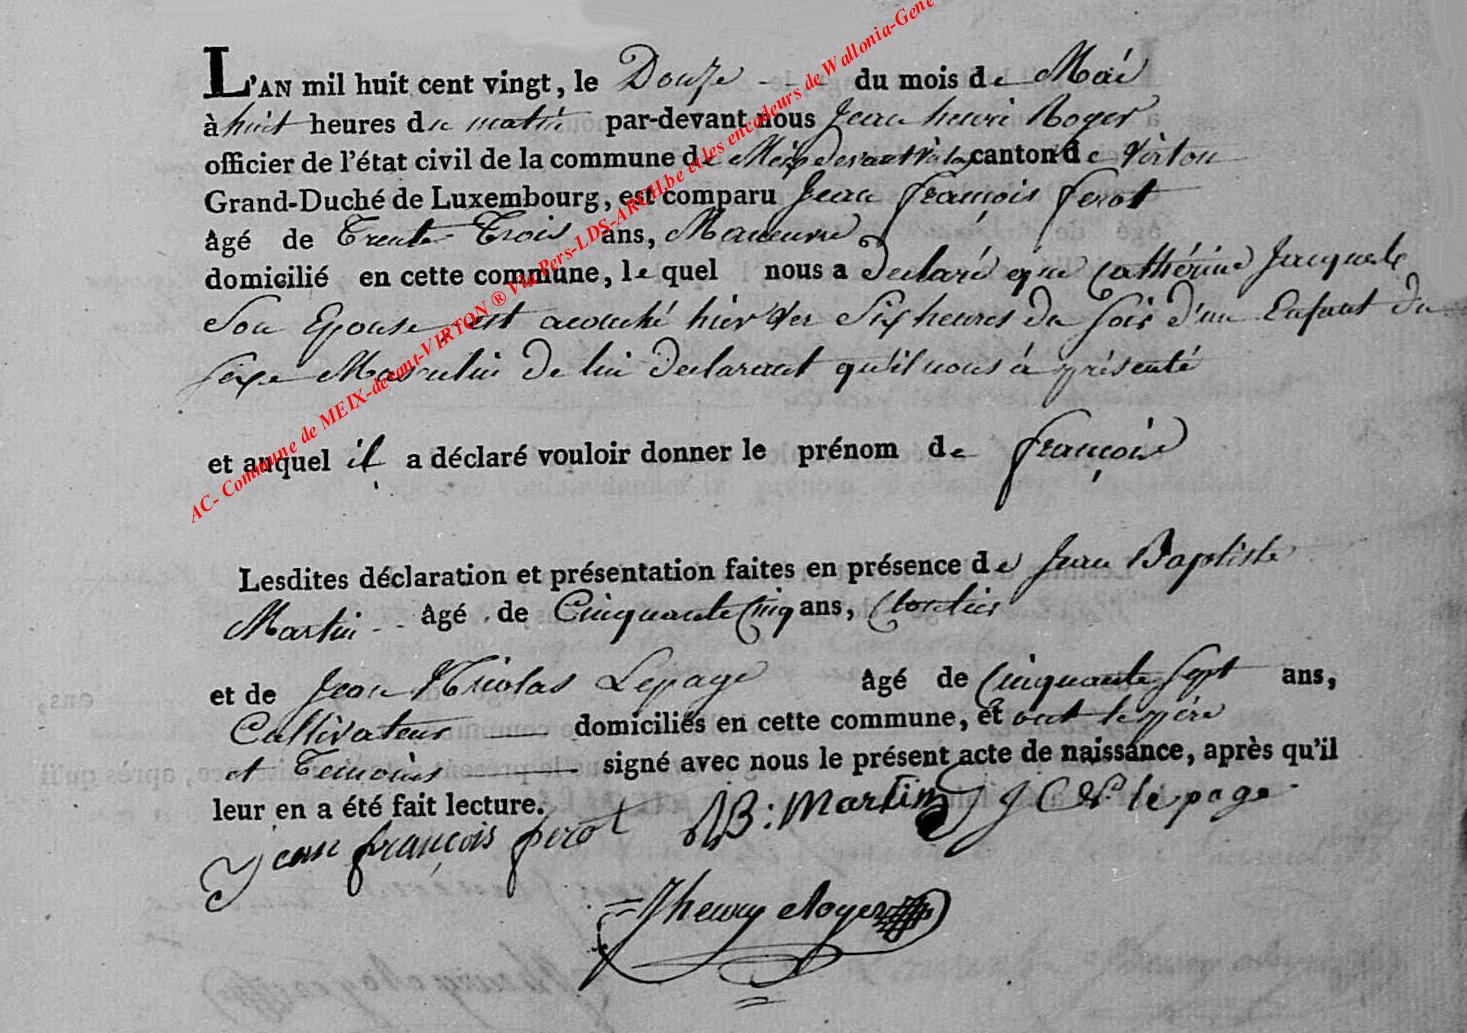 L'AN mil huit cent vingt, le Douze du mois de Mai
à huit heures du matin par-devant nous Jean henri Roger
officier de l'état civil de la commune de Meix devant Virton canton de Virton
Grand-Duché de Luxembourg, est comparu Jean françois ferot
âgé de Trente Trois ans, Maneuvre
domicilié en cette commune, le quel nous a Declaré que Cathérine Jacques
Son Epouse est acouché hier Six heures du soir d'un Enfant du
sexe Masculin De lui Declarant qu'il nous à présenté
et auquel il a déclaré vouloir donner le prénom de françois
Lesdites déclaration et présentation faites en présence de Jean Baptiste
Martin âgé de Cinquante Cinq ans, Cloutier
et de Jean Nicolas Lepage âgé de Cinquante Sept ans,
Cultivateur domiciliés en cette commune, et ont le père
et Temoins signé avec nous le présent acte de naissance, après qu'il
leur en a été fait lecture.
Jean françois ferot JB: Martin J N lepage
Jhenry Roger
AC- Commune de MEIX-devant-VIRTON ® Via Pers-LDS-ARCH.be et les encodeurs de Wallonia-Gene